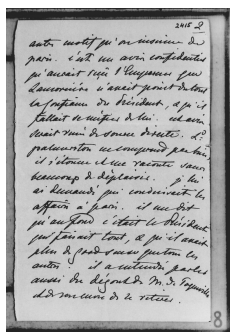 2415 2
autre motif qu'on insinue de
paris. c'est un avis confidentiel
qu'aurait reçu l'Empereur que
Lamoricière n'avait point du tout
la confiance du Président, & qu'il
fallait se méfier de lui. cet avis
serait venu de source directe. Ld
palmerston ne comprend pas bien
il s'étonne et me raconte sans
beaucoup de déplaisir. je lui
ai demandé qui conduisait les
affaires à paris. il me dit
qu'au fond c'était le Président
qui faisait tout, & qu'il avait
plus de good sense que tous les
autres. il a entendu parler
aussi du dégout de M. de Toqueville
et de son envie de se retirer.
8